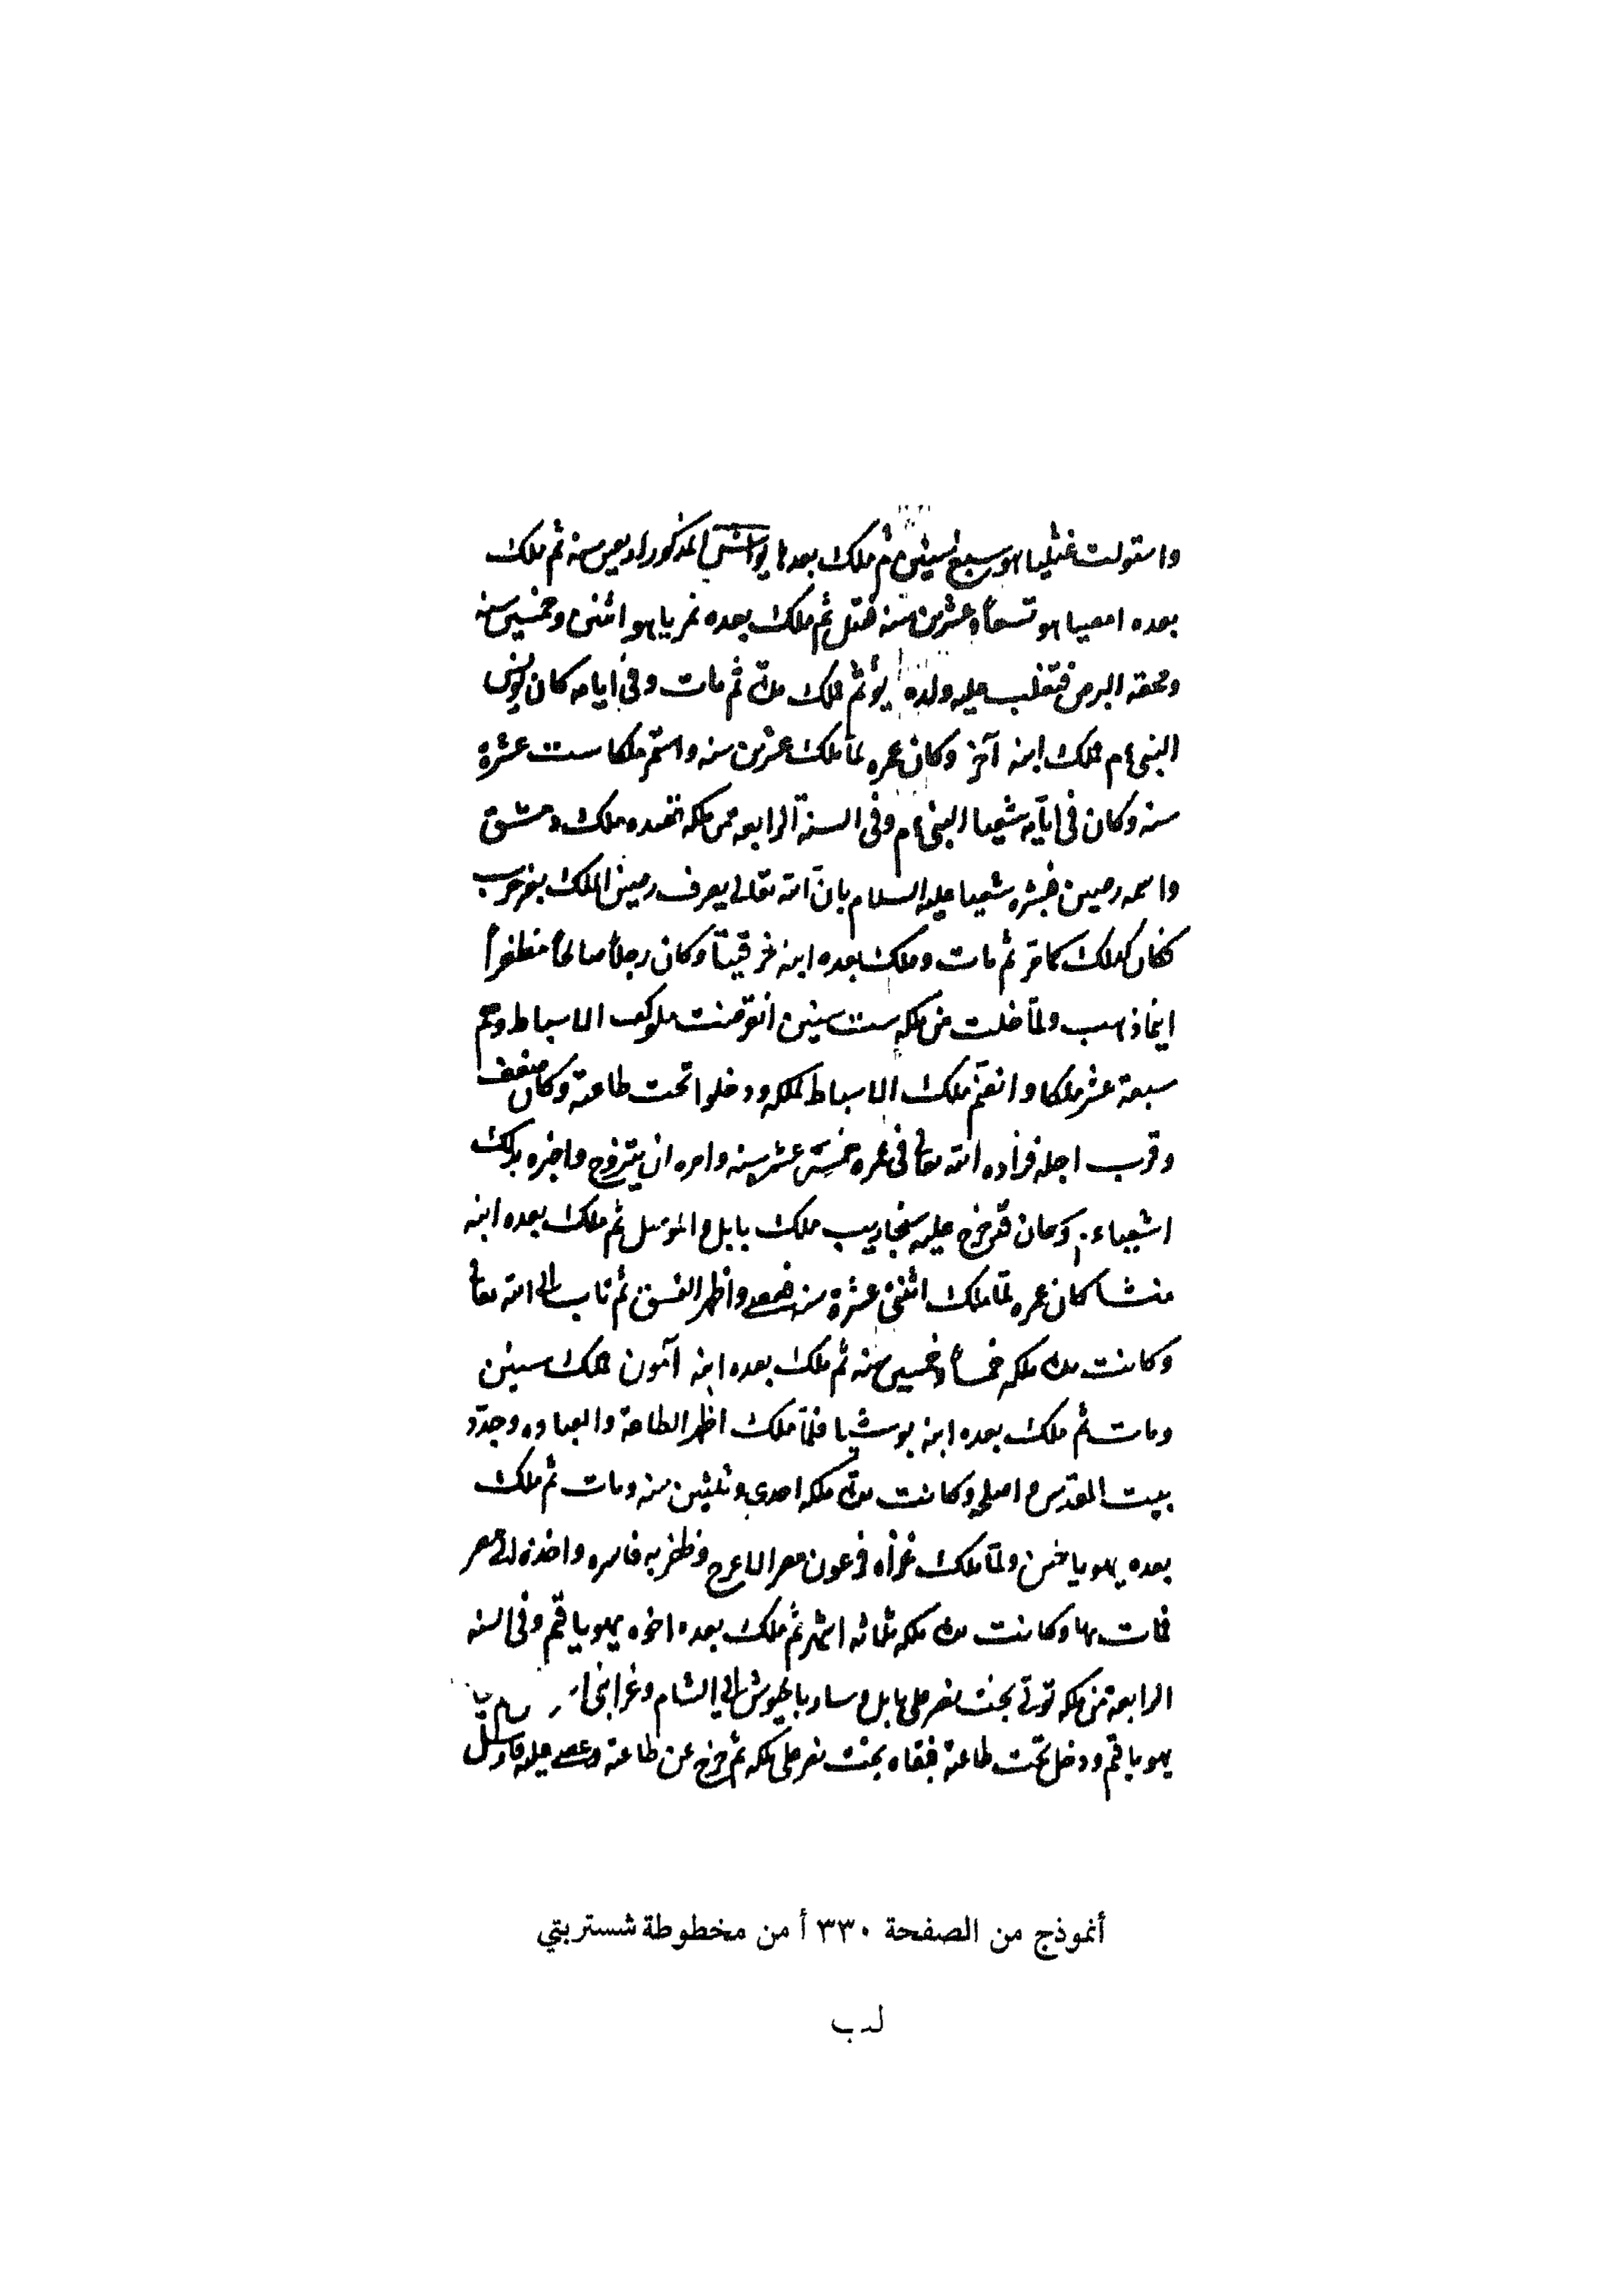 واستولت غثلياهو سبع سنين ثم ملك بعدها يواش المذكور اربعين سنه ثم ملك
بعده امصياهو تسعاً وعشرين سنه فقتل ثم ملك بعده عزياهو اثنى وخمسين سنه
ولحقه البرص فتغلب عليه ولده يوثم فملك مدة ثم مات وفى ايامه كان يونس
النبى ءم فملك ابنه آخز وكان عمره لما ملك عشرين سنه واستمر ملكا ست عشرة
سنه وكان فى ايامه شعيا النبى ءم وفى السنة الرابعه من ملكه قصده ملك دمشق
واسمه رصين فبشره شعيا عليه السلام بان الله تعالى يصرف رصين الملك بغير حرب
فكان كذلك كما مر ثم مات وملك بعده ابنه خزقيا وكان رجلاً صالحاً مظفراً
اينما ذهب ولما خلت من ملكه ست سنين انقرضت ملوك الاسباط وهم
سبعة عشر ملكا وانضم ملك الاسباط لملكه ودخلوا تحت طاعته وكان ضعف
وقرب اجله فزاده الله تعالى فى عمره خمسة عشر سنه وامره ان يتزوج واخبره بذلك
اشعياء ءم وكان قد خرج عليه سنجاريب ملك بابل والموصل ثم ملك بعده ابنه
منشا كان عمره لما ملك اثنتى عشرة سنه فعصى واظهر الفسق ثم تاب الى الله تعالى
وكانت مدة ملكه خمساً وخمسين سنه ثم ملك بعده ابنه آمون فملك سنين
ومات ثم ملك بعده ابنه يوشيا فلما ملك اظهر الطاعة والعباده وجدد
بيت المقدس واصلحه وكانت مدة ملكه احدى وثلثين سنه ومات ثم ملك
بعده يهوياخس ولما ملك غزاه فرعون مصر الاعرج وظفر به فاسره واخذه الى مصر
فمات بها وكانت مدة ملكه ثلثه اشهر ثم ملك بعده اخوه يهوياقم وفى السنه
الرابعة من ملكه تولى بخت نصر على بابل وسار بالجيوش الى الشام وغزا بنى
يهوياقم ودخل تحت طاعته فبقاه بخت نصر على ملكه ثم خرج عن طاعته وعصى عليه فارسل
أنموذج من الصفحة ٣٣٠ أ من مخطوطة شستربتي
لد ب